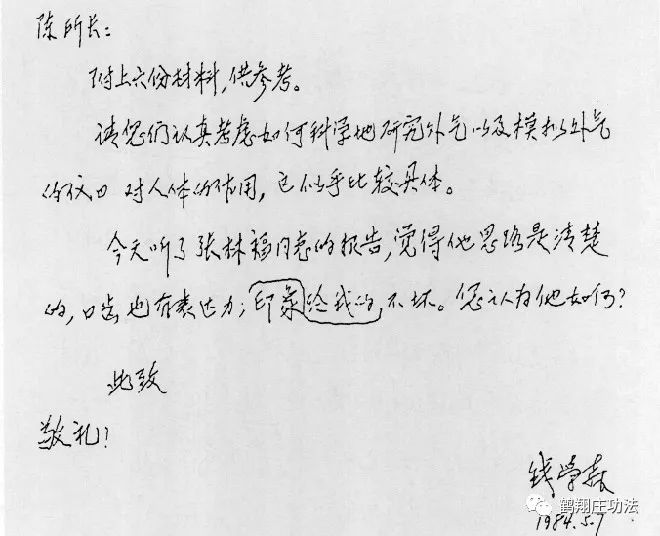 陈所长：
附上六份材料，供参考。
请您们认真考虑如何科学地研究外气以及模拟外气
的仪口 对人体的作用，这似乎比较具体。
今天听了张林福同志的报告，觉得他思路是清楚
的，口齿也有表达力；印象给我的，不坏。您认为他如何？
此致
敬礼！
钱学森
1984.5.7
鹤翔庄功法